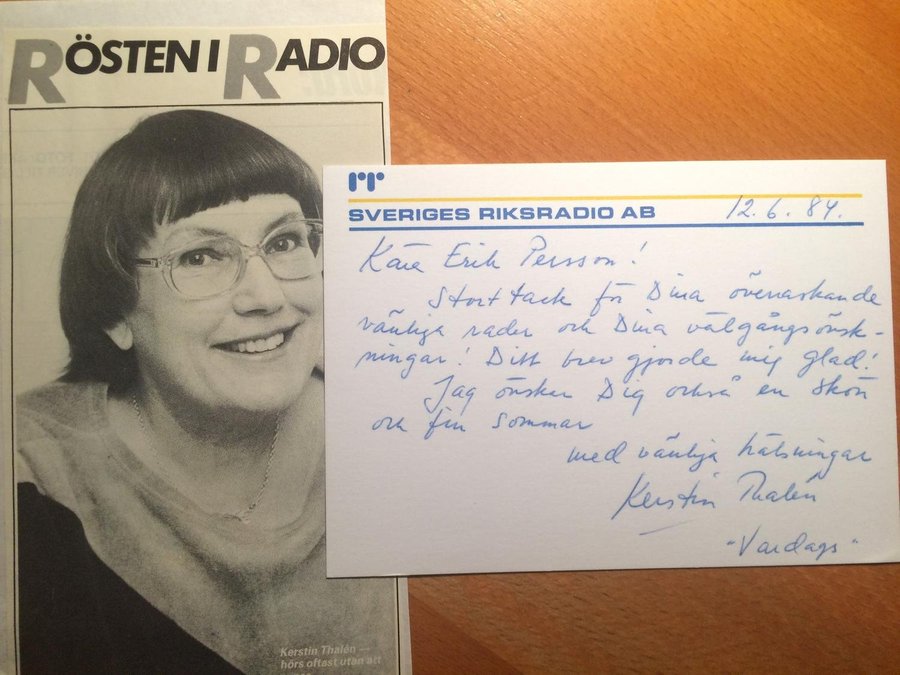 RÖSTEN I RADIO
Kerstin Thalén —
hörs oftast utan att
rr
SVERIGES RIKSRADIO AB
12.6.84.
Kära Erik Persson!
Stort tack för Dina överraskande
vänliga rader och Dina välgångsönsk-
ningar! Ditt brev gjorde mig glad!
Jag önskar Dig också en skön
och fin sommar
med vänliga hälsningar
Kerstin Thalén
"Vardags"